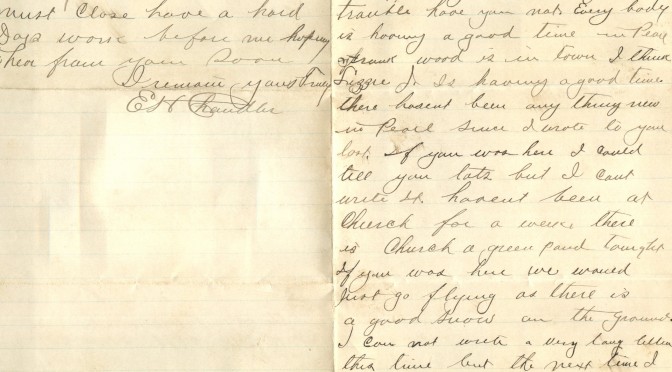 must Close have a hard
Days work before me hoping
hear from you soon
I remain yours Truly
Ed H Chandler
trouble have you not Every body
is having a good time in Pearl
Frank wood is in town I think
Lizzie J. Is having a good time
there hasent been any thing new
in Pearl Since I wrote to you
last. If you was here I could
tell you lots but I cant
write it. havent been at
Church for a week there
is Church a green pond tonight
If you was here we would
Just go flying as there is
a good snow on the ground
I can not write a very long letter
this time but the next time I